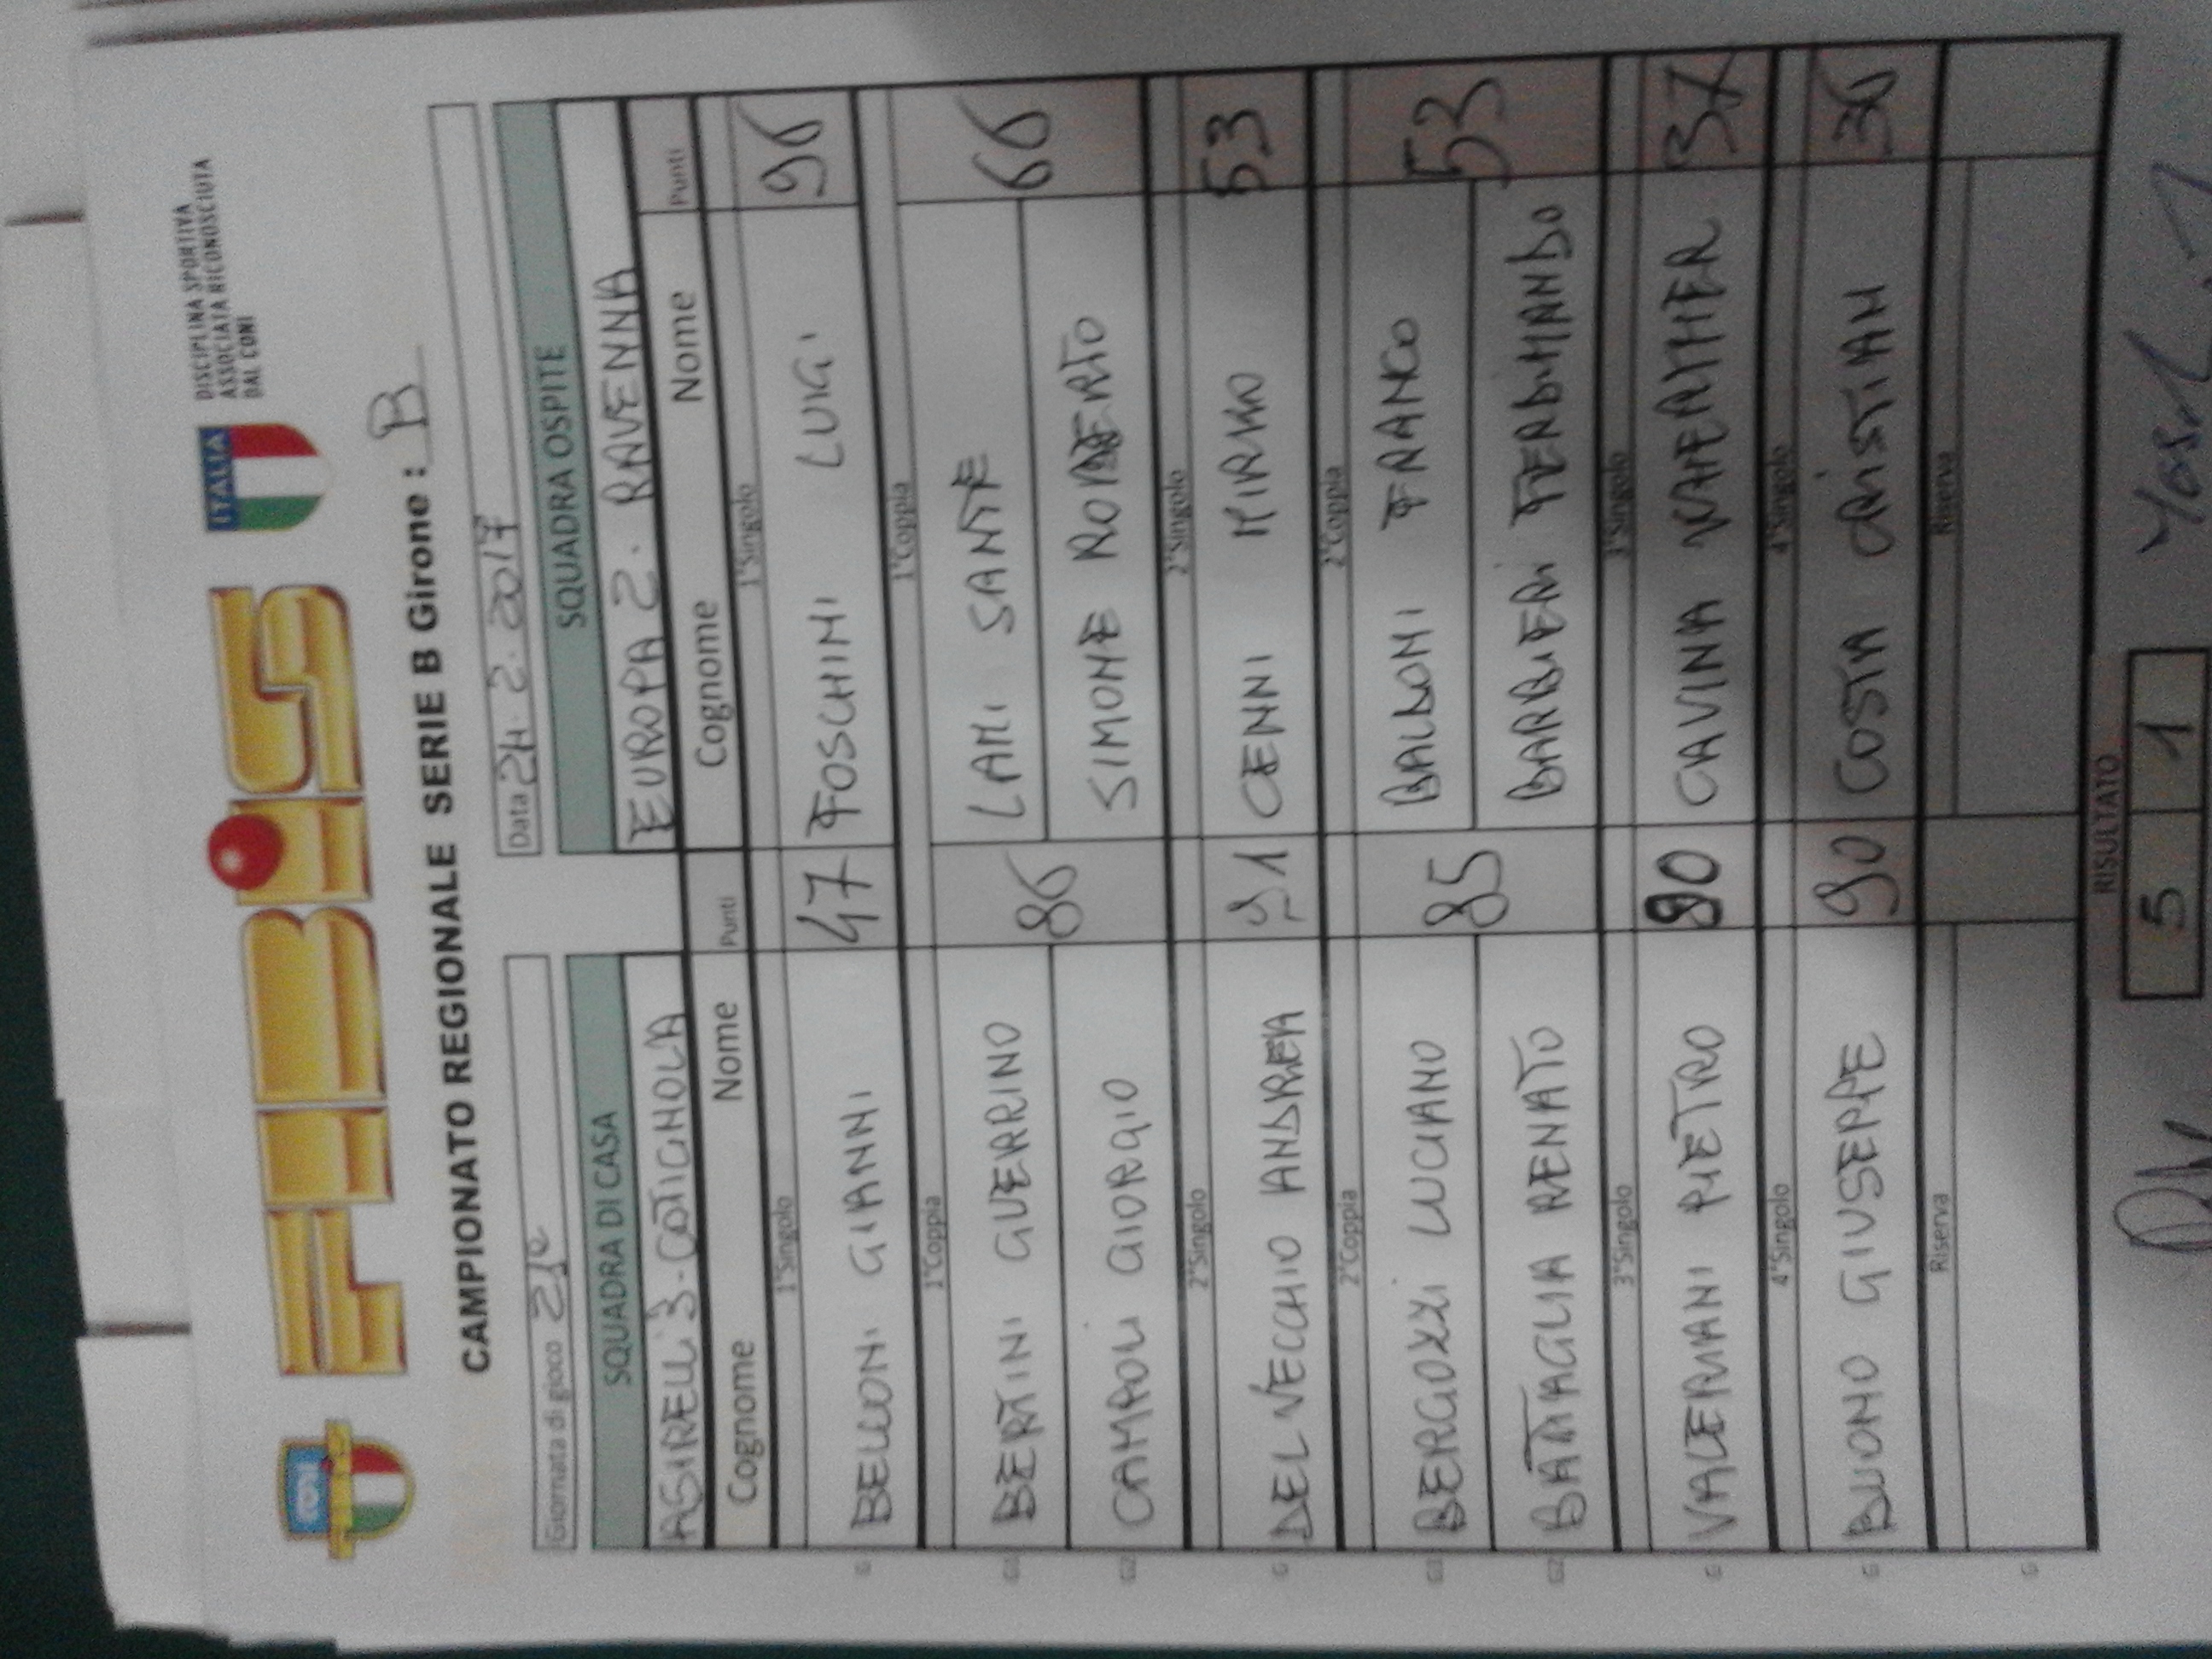 CONI
FIBiS
ITALIA
DISCIPLINA SPORTIVA
ASSOCIATA RICONOSCIUTA
DAL CONI
CAMPIONATO REGIONALE SERIE B Girone : B
Giornata di gioco Data 24. 2. 2017
SQUADRA DI CASA SQUADRA OSPITE
ASIRELLI 3 - COTIGNOLA EUROPA 2. RAVENNA
Cognome Nome Punti Cognome Nome Punti
1°Singolo 1°Singolo
BELLONI GIANNI 47 FOSCHINI LUIGI 96
1°Coppia 1°Coppia
BERTINI GUERRINO 86 LAMI SANTE 66
CAMPOLI GIORGIO SIMONE ROBERTO
2°Singolo 2°Singolo
DEL VECCHIO ANDREA 91 CENNI MIRKO 53
2°Coppia 2°Coppia
BERGOZZI LUCIANO 85 BALDONI FRANCO 53
BATTAGLIA RENATO BARBIERI FERDINANDO
3°Singolo 3°Singolo
VALERIANI PIETRO 90 CAVINA WHERTHER 37
4°Singolo 4°Singolo
BUONO GIUSEPPE 90 COSTA CRISTIAN 36
Riserva Riserva
RISULTATO
5 1